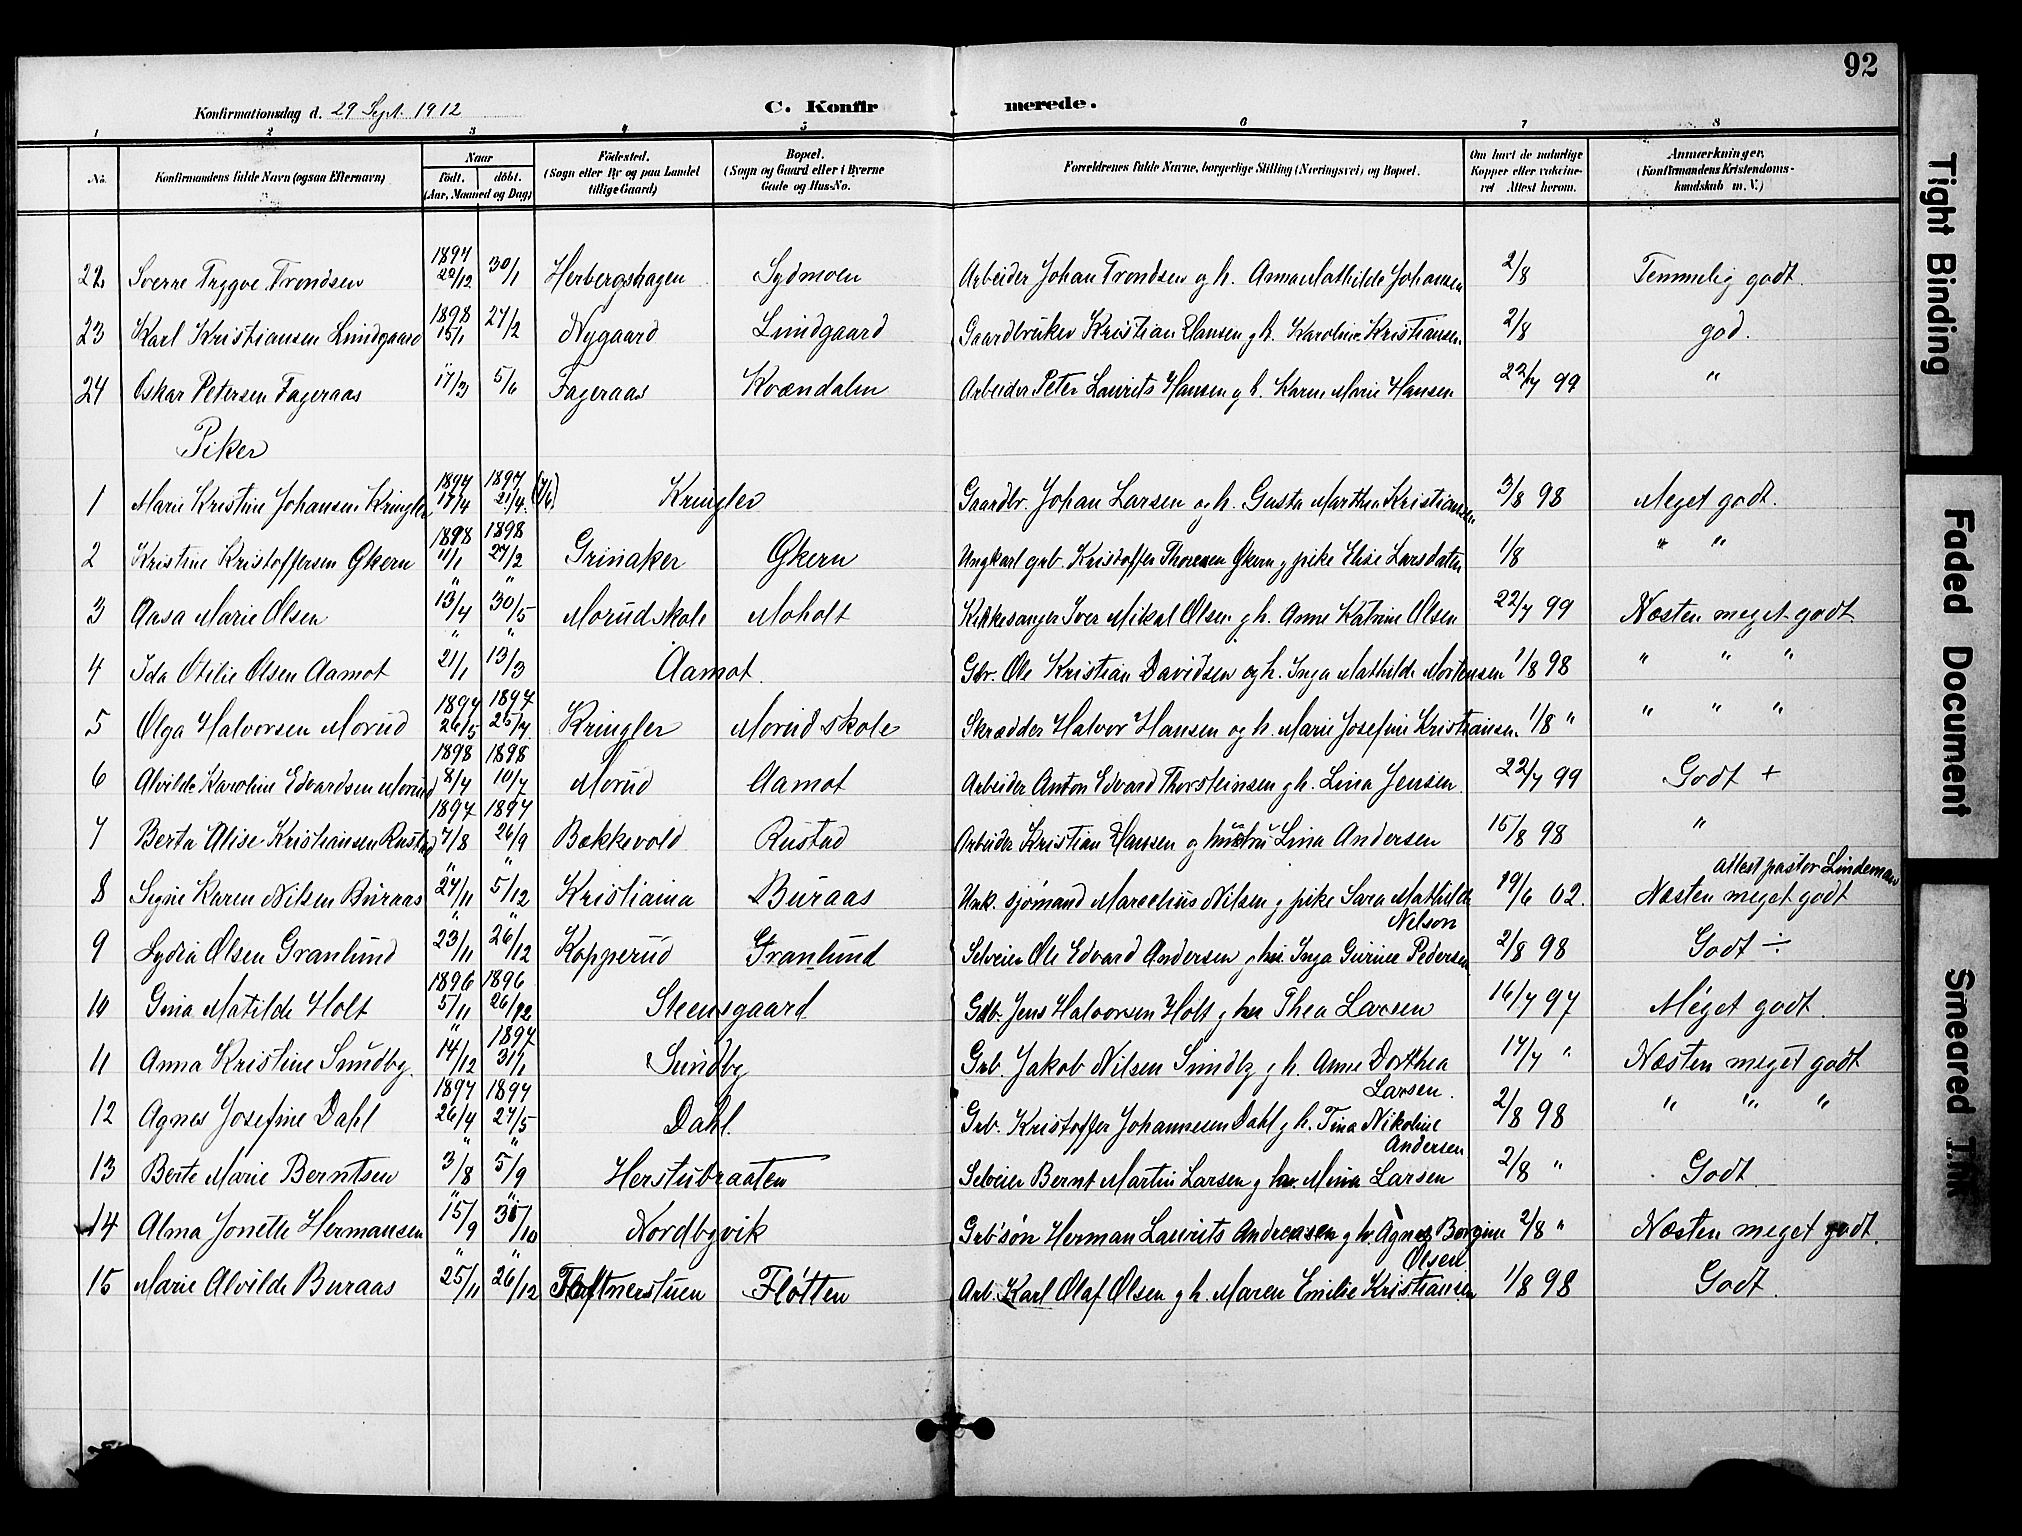 92
Konfirmationsdag d. 29 Sept. 1912 C. Konfirmerede.
1 2 3 4 5 6 7 8
No. Konfirmandens fulde Navn (ogsaa Efternavn) Naar Født. døbt. (Aar, Maaned og Dag) Fødested. (Sogn eller By og paa Landet tillige Gaard) Bopæl. (Sogn og Gaard eller i Byerne Gade og Hus-No. Forældrenes fulde Navne, borgerlige Stilling (Næringsvei) og Bopæl. Om havt de naturlige Kopper eller vaccineret Attest herom. Anmærkninger. (Konfirmandens Kristendomskundskab m. V.)
22 Sverre Trygve Trondsen 1897 22/12 30/1 Herbergshagen Sydmoen Arbeider Johan Trondsen og h. Anna Mathilde Johansen 2/8 Temmelig godt.
23 Karl Kristiansen Lundgaard 1898 15/1 27/2 Nygaard Lundgaard Gaardbruker Kristian Hansen g h. Karoline Kristiansen 2/8 god.
24 Oskar Petersen Fageraas " 17/3 5/6 Fageraas Kvændalen Arbeider Peter Laurits Hansen g h. Karen Marie Hansen 22/7 99 "
Piker
1 Marie Kristine Johansen Kringler 1897 17/4 1897 21/4 (7/6) Kringler Gaardbr. Johan Larsen og h. Gusta Marthea Kristiansen 3/8 98 Meget godt.
2 Kristine Kristoffersen Gkern 1898 11/1 1898 27/2 Grinaker Gkern Ungkarl grb. Kristoffer Thoresen Gkern g pike Elise Larsdatter 1/8 " "
3 Aasa Marie Olsen " 13/4 " 30/5 Morud skole Moholt Kirkesanger Iver Mikal Olsen g h. Anne Katrine Olsen 22/7 99 Næsten meget godt
4 Ida Otilie Olsen Aamot " 21/1 " 13/3 Aamot. Gbr. Ole Kristian Davidsen og h. Inga Mathilde Mortensen 1/8 98 " " "
5 Olga Halvorsen Morud 1897 26/5 1897 25/7 Kringler Morud skole Skrædder Halvor Hansen og h. Marie Josefine Kristiansen. 1/8 " " " "
6 Alvilde Karoline Edvardsen Morud 1898 8/4 1898 10/7 Morud Aamot Arbeider Anton Edvard Thorsteinsen g h. Lina Jensen 22/7 99 Godt +
7 Berta Elise Kristiansen Rustad 1897 7/8 1897 26/9 Bækkevold Rustad Arbeider Kristian Hansen g hustru Lina Andersen 15/8 98 "
Attest pastor Lindeman
8 Signe Karen Nilsen Buraas " 27/11 " 5/12 Kristiania Buraas Unk. sjømand Marcelius Nilsen g pike Sara Mathilde 19/6 02. Næsten meget godt
Nelson
9 Lydia Olsen Granlund " 23/11 " 26/12 Kopperud Granlund Selveier Ole Edvard Andersen g hu. Inga Gurine Pedersen 2/8 98 Godt ÷
10 Gina Matilde Holt 1896 5/11 1896 26/12 Steensgaard Gdb. Jens Halvorsen Holt g hu Thea Larsen 16/7 97 Meget godt.
11 Anna Kristine Sundby. " 14/12 1897 31/1 Sundby Grb. Jakob Nilsen Sundby g h. Anne Dorthea 17/7 " Næsten meget godt
Larsen.
12 Agnes Josefine Dahl 1897 26/4 1897 27/5 Dahl. Grb. Kristoffer Johannesen Dahl g h. Tina Nikoline 2/8 98 " " "
Andersen
13 Berte Marie Berntsen " 3/8 " 5/9 Herstubraaten Selveier Bernt Martin Larsen g hu. Mina Larsen 2/8 " Godt.
14 Alma Jonette Hermansen " 15/9 " 31/10 Nordbyvik Grb's søn Herman Laurits Andreasen g h. Agnes Borgine 2/8 " Næsten meget godt.
Olsen
15 Marie Alvilde Buraas " 25/11 " 26/12 Fløtnerstuen Fløtten Arb. Karl Olaf Olsen g h. Maren Emilie Kristiansen 1/8 98 Godt.
Tight Binding
Faded Document
Smeared Ink